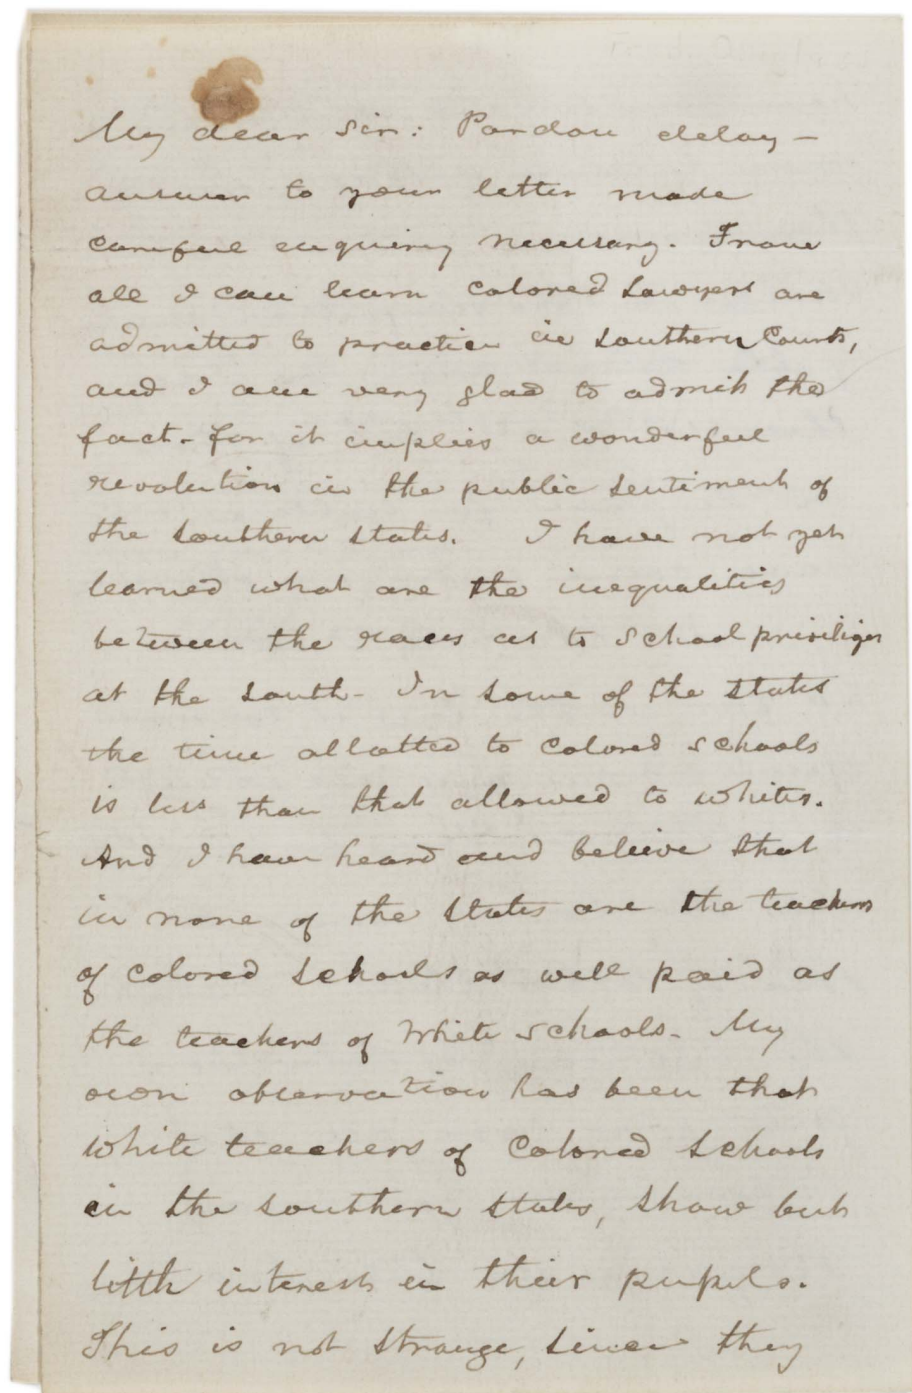 My dear Sir: Pardon delay —
answer to your letter made
careful enquiry necessary. From
all I can learn colored Lawyers are
admitted to practice in Southern Courts,
and I am very glad to admit the
fact - for it implies a wonderful
revolution in the public sentiment of
the Southern States. I have not yet
learned what are the inequalities
between the races as to School privileges
at the South - In some of the States
the time allotted to Colored schools
is less than that allowed to whites.
And I have heard and believe that
in none of the States are the teachers
of Colored Schools as well paid as
the teachers of White Schools - My
own observation has been that
white teachers of Colored Schools
in the Southern States, show but
little interest in their pupils.
This is not strange, since they